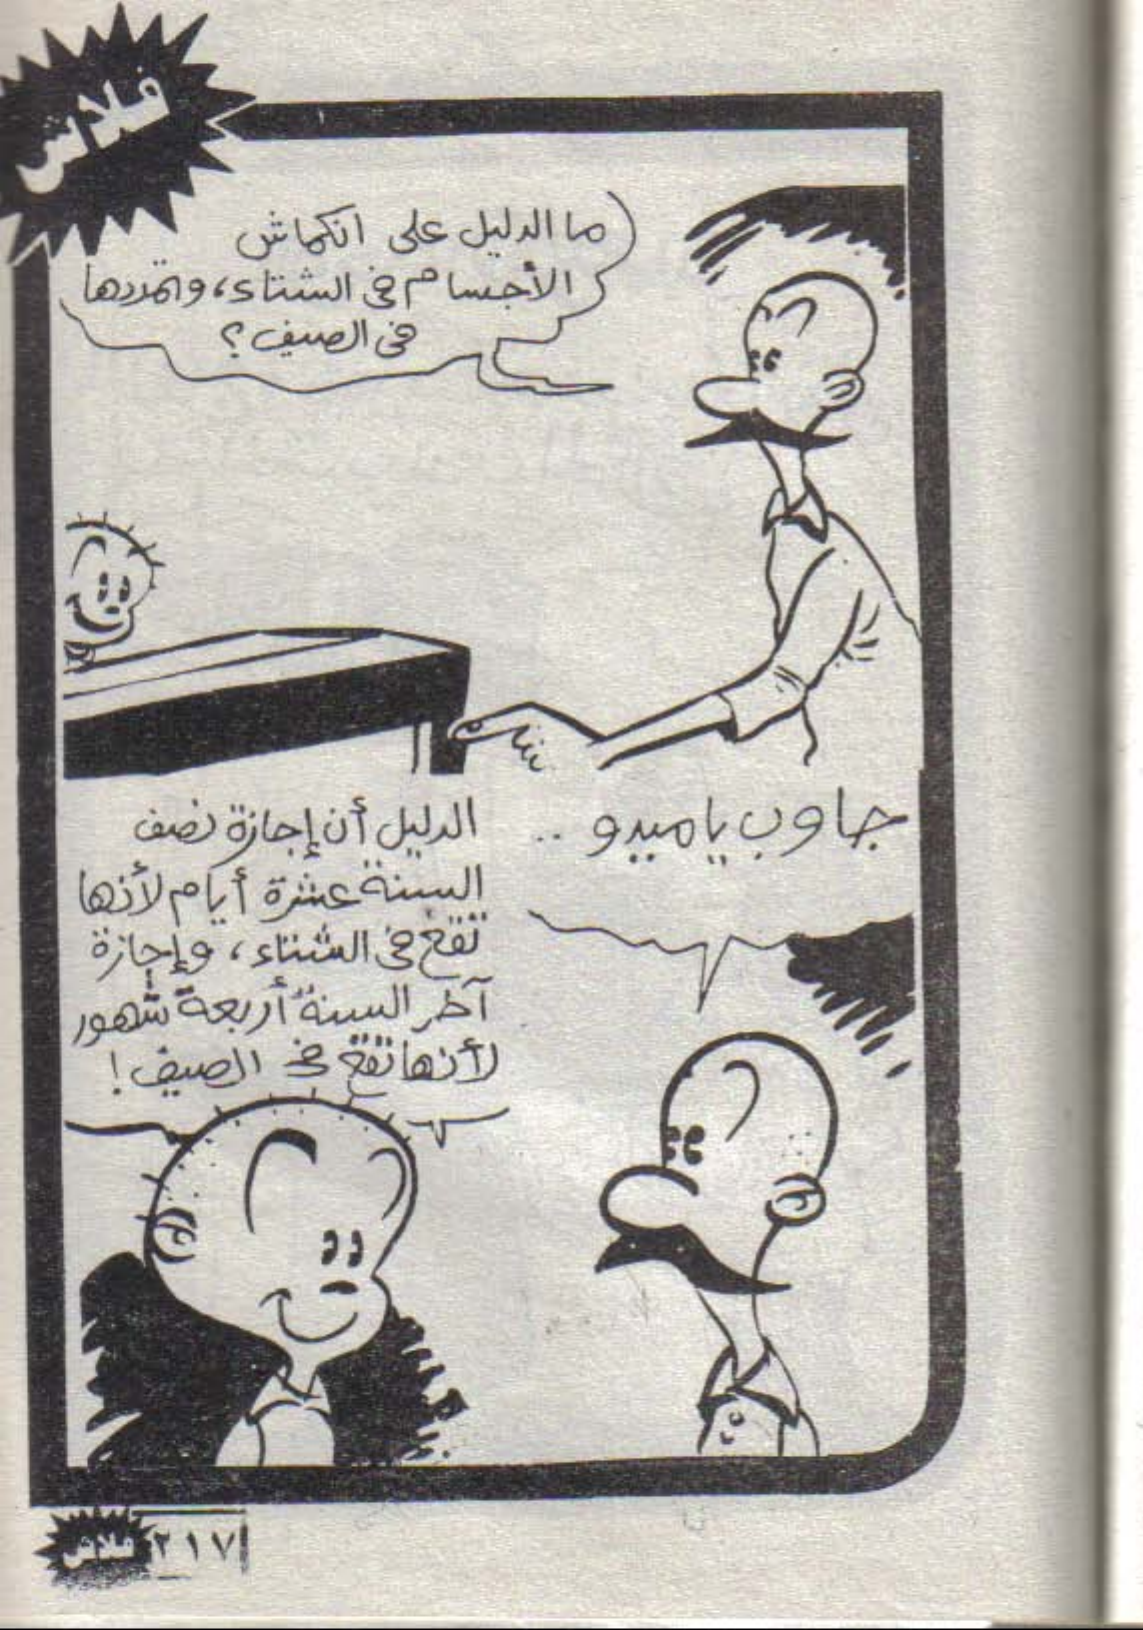 فلاش
ما الدليل على انكماش
الأجسام فى الشتاء، وتمددها
فى الصيف؟
جاوب ياميدو ..
الدليل أن إجازة نصف
السنة عشرة أيام لأنها
تقع فى الشتاء، وإجازة
آخر السنة أربعة شهور
لأنها تقع فى الصيف!
فلاش ٢١٧